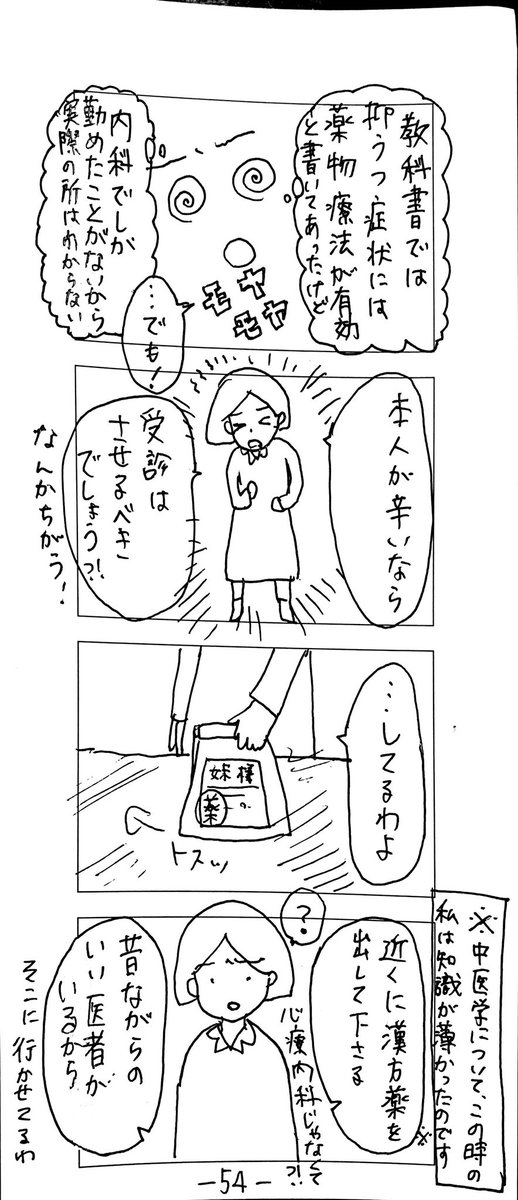 教科書では
抑うつ症状には
薬物療法が有効
と書いてあったけど
内科でしか
勤めたことがないから
実際の所はわからない
モヤ
モヤ
…でも!
本人が辛いなら
受診は
させるべき
でしょう?!
なんかちがう!
…してるわよ
妹様
薬
トスッ
※中医学について、この時の
私は知識が薄かったのです
近くに漢方薬を※
出して下さる
?
心療内科じゃなくて?!
昔ながらの
いい医者が
いるから
そこに行かせてるわ
-54-